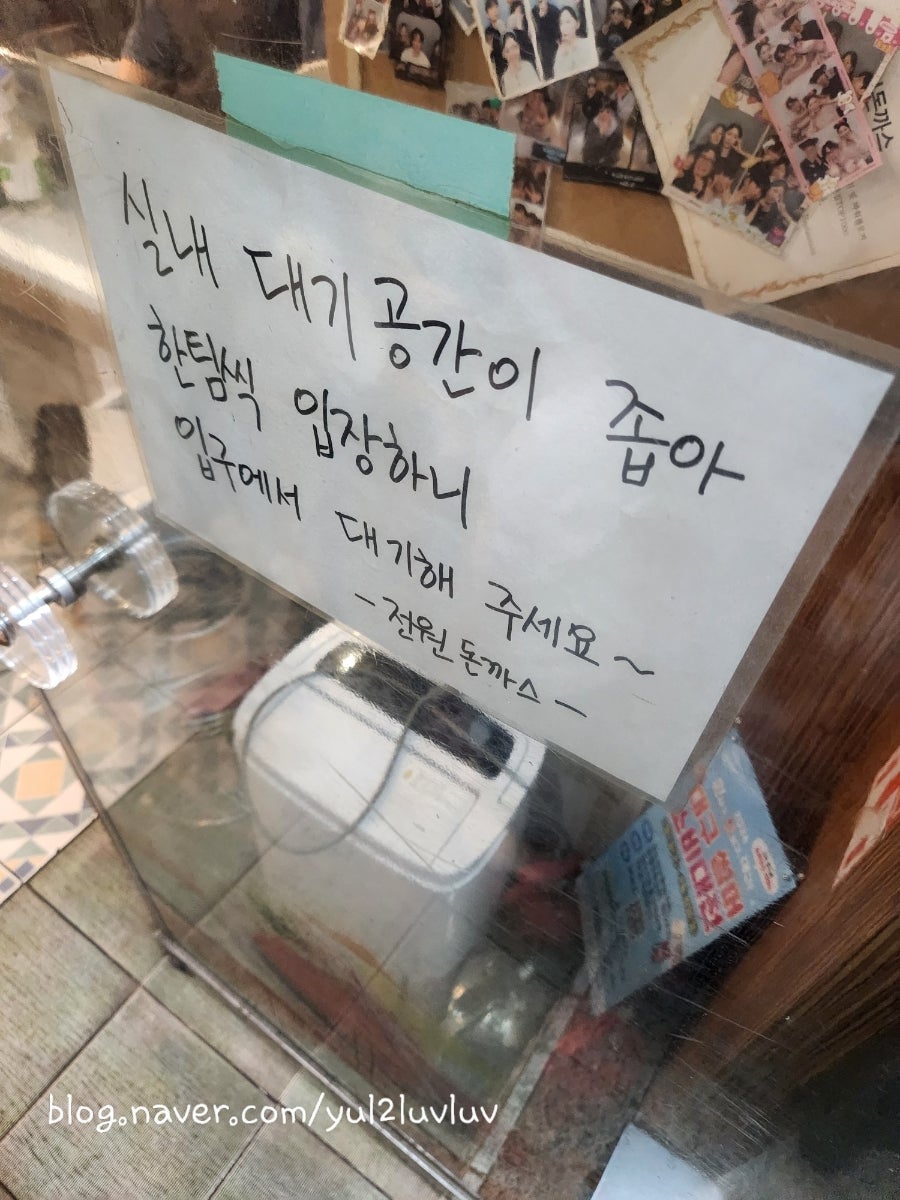 실내 대기공간이 좁아
한팀씩 입장하니
입구에서 대기해 주세요~
- 전원 돈까스 -
돈까스
대구 썸머
소비대전
blog.naver.com/yul2luvluv